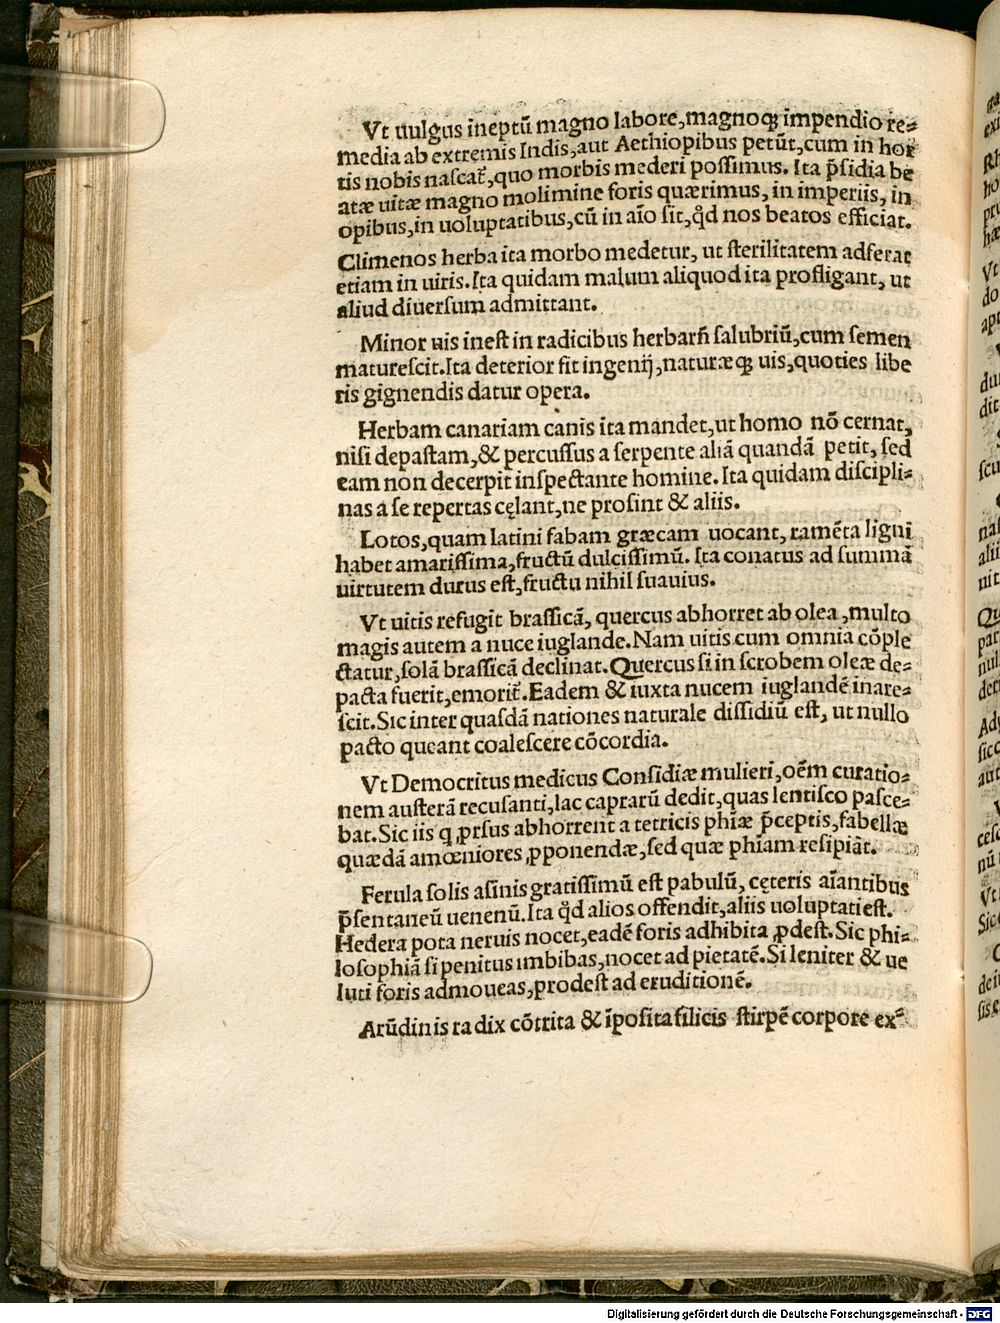 Vt uulgus ineptũ magno labore,magnoqꝫ impendio re⸗
media ab extremis Indis,aut Aethiopibus petũt,cum in hor
tis nobis nascat᷑,quo morbis mederi possimus. Ita p̃sidia be
atæ uitæ magno molimine foris quærimus, in imperiis, in
opibus,in uoluptatibus,cũ in aĩo sit,qd̓ nos beatos efficiat.
Climenos herba ita morbo medetur, ut sterilitatem adferat
etiam in uiris.Ita quidam malum aliquod ita profligant, ut
aliud diuersum admittant.
Minor uis inest in radicibus herbarũ salubriũ,cum semen
maturescit.Ita deterior fit ingenij,naturæqꝫ uis,quoties libe
ris gignendis datur opera.
Herbam canariam canis ita mandet,ut homo nõ cernat,
nisi depastam,& percussus a serpente aliã quandã petit, sed
eam non decerpit inspectante homine. Ita quidam discipli⸗
nas a se repertas cęlant,ne prosint & aliis.
Lotos,quam latini fabam græcam uocant, ramẽta ligni
habet amarissima,fructũ dulcissimũ. Ita conatus ad summã
uirtutem durus est,fructu nihil suauius.
Vt uitis refugit brassicã, quercus abhorret ab olea ,multo
magis autem a nuce iuglande.Nam uitis cum omnia cõple
ctatur,solã brassicã declinat.Quercus si in scrobem oleæ de⸗
pacta fuerit,emorit᷑.Eadem & iuxta nucem iuglandẽ inare⸗
scit.Sic inter quasdã nationes naturale dissidiũ est, ut nullo
pacto queant coalescere cõcordia.
Vt Democritus medicus Considiæ mulieri,oẽm curatio⸗
nem austerã recusanti,lac caprarũ dedit,quas lentisco pasce⸗
bat.Sic iis q ꝓrsus abhorrent a tetricis phiæ p̃ceptis,fabellæ
quædã amœniores ꝓponendæ,sed quæ phiam resipiãt.
Ferula solis asinis gratissimũ est pabulũ, cęteris aĩantibus
p̃sentaneũ uenenũ.Ita qd̓ alios offendit,aliis uoluptati est.
Hedera pota neruis nocet,eadẽ foris adhibita ꝓdest.Sic phi⸗
losophiã si penitus imbibas,nocet ad pietatẽ.Si leniter & ue
luti foris admoueas,prodest ad eruditionẽ.
Arũdinis radix cõtrita & ĩposita silicis stirpẽ corpore ex⸗
Digitalisierung gefördert durch die Deutsche Forschungsgemeinschaft - DFG